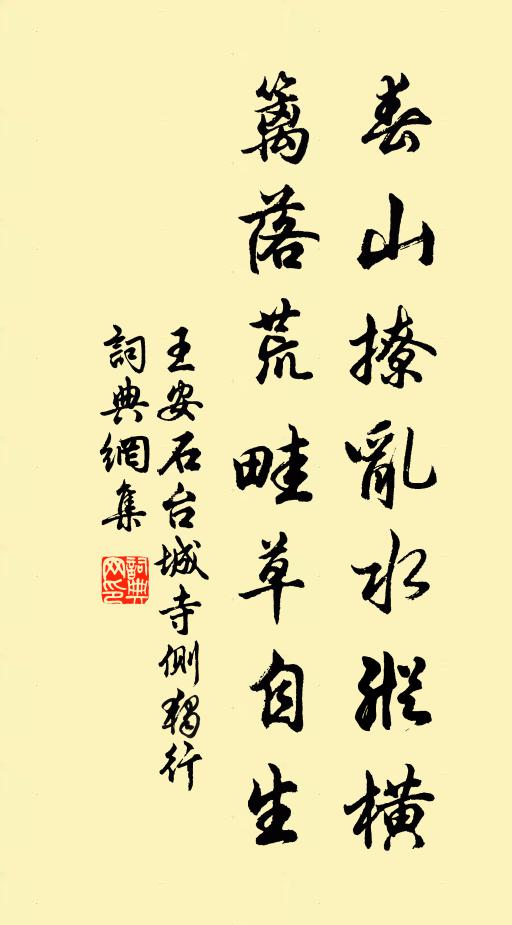 春山撩亂水縱橫
籬落荒畦草自生
王安石台城寺側獨行
詞典網集
詞典
网印